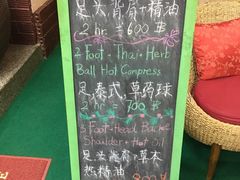 足头背肩+精油
(2 hr. = 600 ฿
2 Foot - Thai - Herb
Ball Hot Compress
足泰式,草药球
2 hr = 700 ฿
3 Foot - Head Back
Shoulder + Hot Oil
足头背肩+草本
热精油